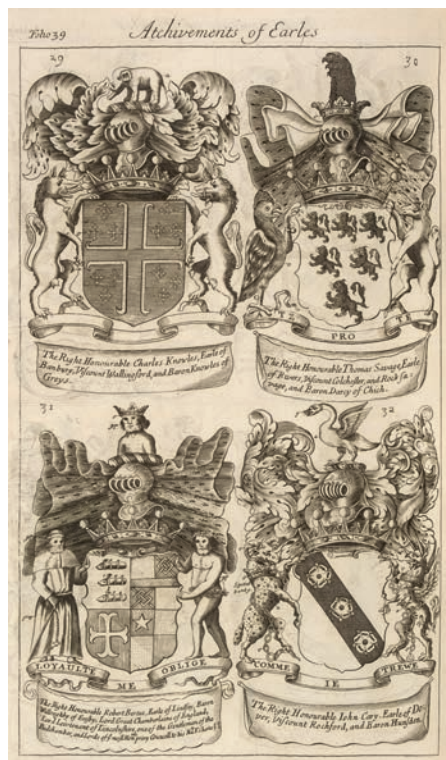 Folio 39
Atchivements of Earles
29
30
The Right Honourable Charles Knowles, Earle of
Banbury, Viscount Wallingford, and Baron Knowles of
Greys.
PRO
The Right Honourable Thomas Savage, Earle
of Rivers, Viscount Colchester, and Rock sa
vage, and Baron Darcy of Chich.
31
32
LOYAULTE ME OBLIGE
The Right Honourable Robert Bertue, Earle of Lindsey, Baron
Willoughby of Ersby, Lord Great Chamberlaine of England,
Lord Lieutenant of Lincolnshire, one of the Gentlemen of the
Bedchamber, and Lords of his Privy Councell to
COMME IE TREWE
The Right Honourable Iohn Cary, Earle of Do
ver, Viscount Rochford, and Baron Hunsden.